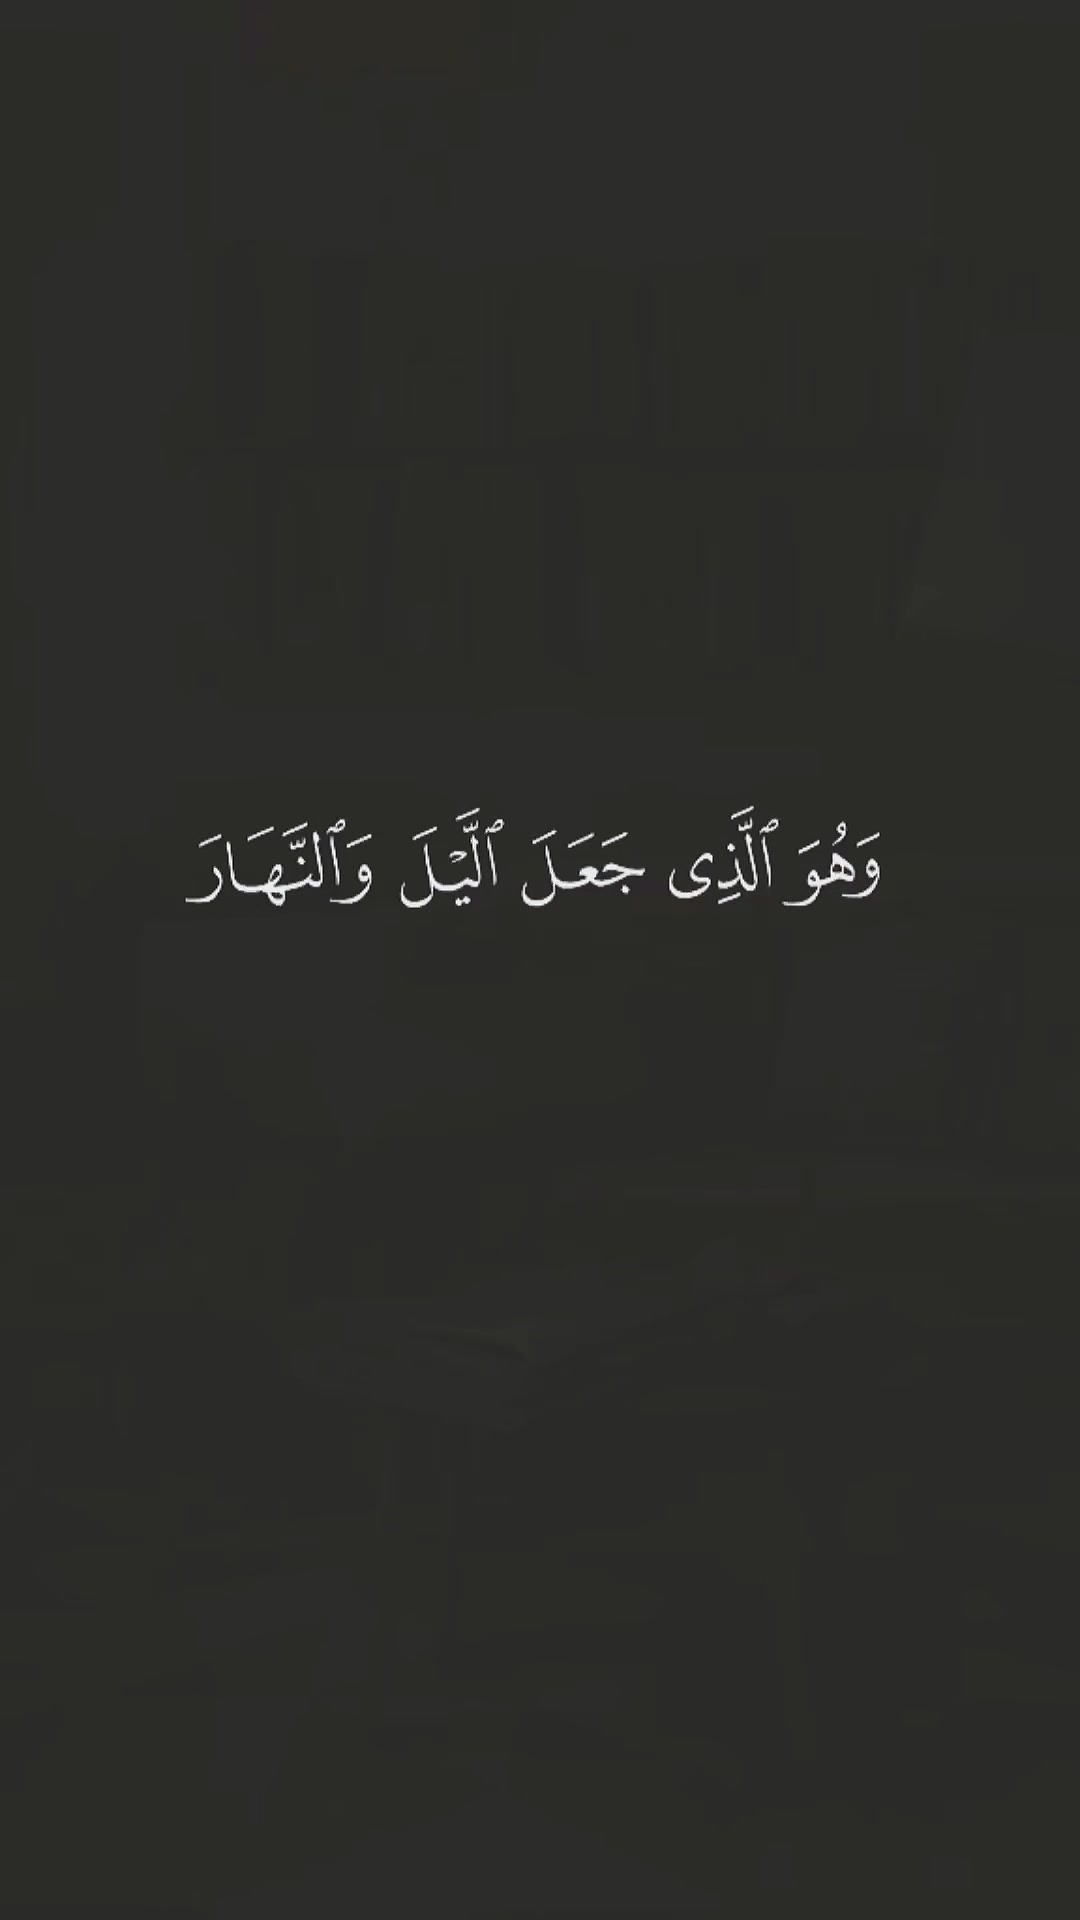 وَهُوَ ٱلَّذِى جَعَلَ ٱلَّيۡلَ وَٱلنَّهَارَ